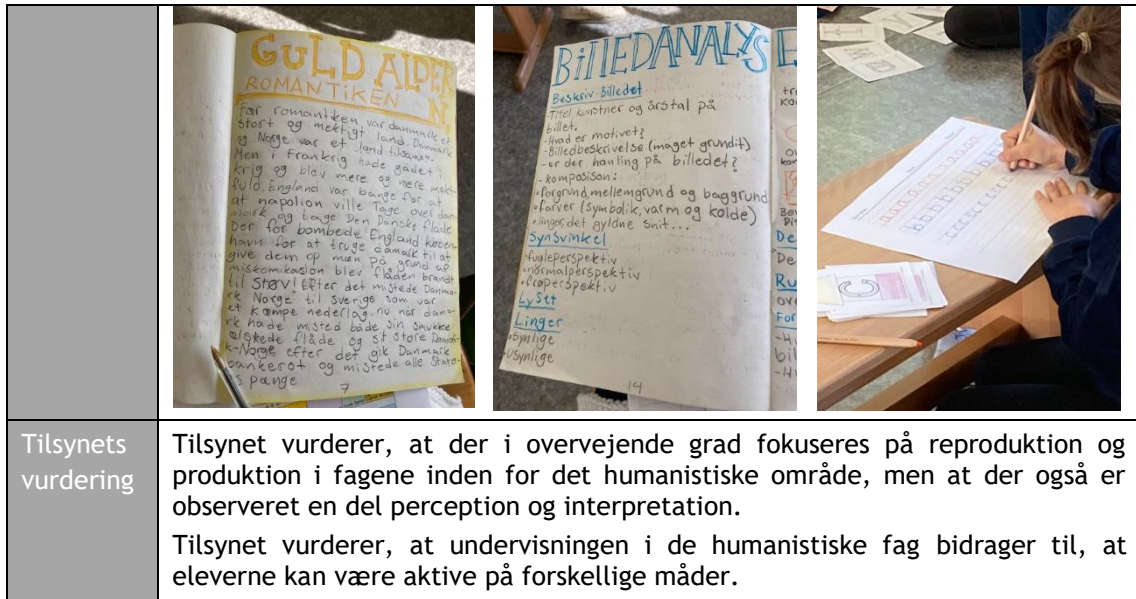 GULDALDER
N.
ROMANTIKEN
Før romantiken var danmark et
stort og mektigt land. Danmark
og Norge var et land tilsamen.
Men i Frankrig hade gådet i
krig og blev mere og mere mekt-
fuld. England var bange for at
at napolion ville Tage over dan
mark og tage Den Danske flåde
Der for bombede England købem
havn for at truge damark til at
give dem op mæn på grund af
miskomikasion blev flåden brandt
til Støv! Efter det mistede Danma-
rk Norge til sverige som var
et kæmpe nederlag. nu når dama-
rk hade misted både sin smukke
elskede flåde og sit store Danmar-
k-Norge efter det gik Danmark
bankerot og mistede alle Stats-
s pænge
7
BILLEDANALYS E
Beskriv Billedet
-Titel kunstner og årstal på
billet.
-Hvad er motivet?
-Billedbeskrivelse (maget grundit)
-er der hanling på billedet?
-komposison:
•forgrund, mellemgrund og baggrund
•farver (symbolik, varm og kolde)
•linger, det gyldne snit...
Synsvinkel
•fugleperspektiv
•normalperspektiv
•frøperspektiv
Lyset
Linger
•Synlige
•Usynlige
14
a a a a a a a a a a a
b b b b b b b b b
c c c c c c c c
C
Tilsynets
vurdering
Tilsynet vurderer, at der i overvejende grad fokuseres på reproduktion og
produktion i fagene inden for det humanistiske område, men at der også er
observeret en del perception og interpretation.
Tilsynet vurderer, at undervisningen i de humanistiske fag bidrager til, at
eleverne kan være aktive på forskellige måder.